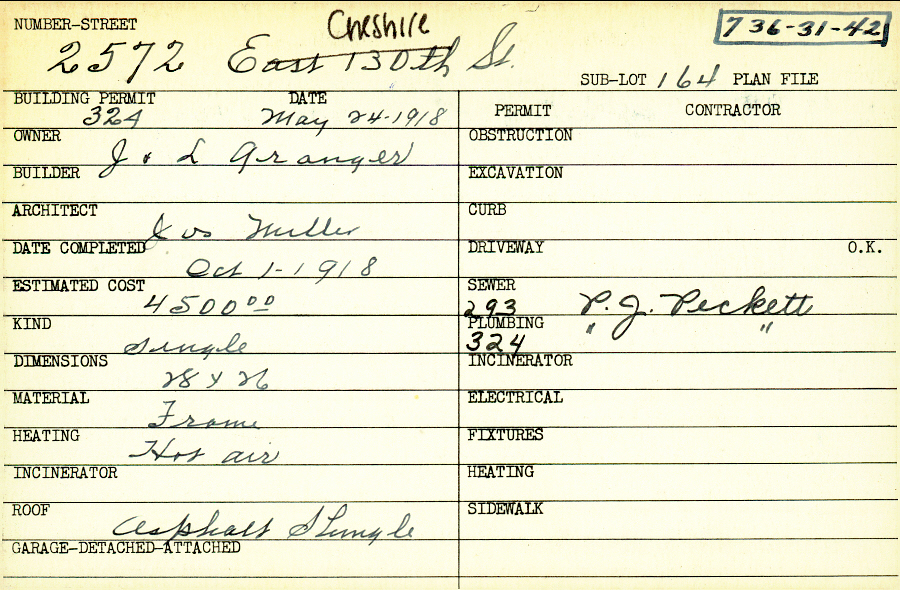 NUMBER-STREET Cheshire 736-31-42
2572 East 130th St.
SUB-LOT 164 PLAN FILE
BUILDING PERMIT DATE
324 May 24-1918
PERMIT CONTRACTOR
OWNER
J & L Granger
BUILDER
ARCHITECT
Miller
DATE COMPLETED
Oct 1-1918
ESTIMATED COST
4500 00
KIND
Single
DIMENSIONS
28 x 26
MATERIAL
Frame
HEATING
Hot air
INCINERATOR
ROOF
Asphalt Shingle
GARAGE-DETACHED-ATTACHED
OBSTRUCTION
EXCAVATION
CURB
DRIVEWAY O.K.
SEWER
293 P. J. Peckett
PLUMBING " "
324
INCINERATOR
ELECTRICAL
FIXTURES
HEATING
SIDEWALK